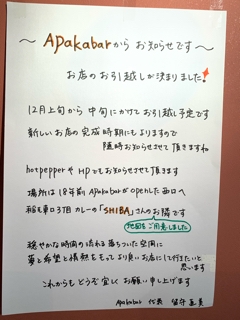 〜 Apakabarから お知らせです 〜
お店のお引越しが決まりました!
12月上旬から中旬にかけてお引越し予定です
新しいお店の完成時期にもよりますので
随時お知らせさせて頂きますね
hotpepperやHPでもお知らせさせて頂きます
場所は18年前ApakabarがOpenした西口へ
カレーの「SHIBA」さんのお隣です
地図をご用意しました
穏やかな時間の流れる落ちついた空間に
夢と希望と情熱をもってより良いお店にして行きたいと
思います
これからもどうぞ宜しくお願い申し上げます
Apakabar 代表